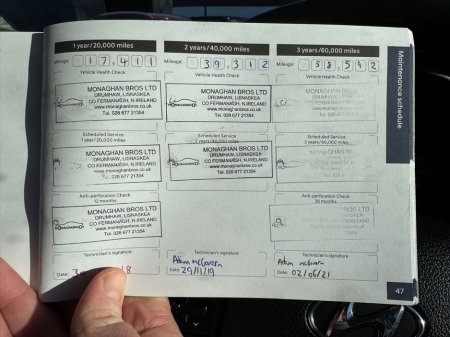 1 year/20,000 miles
Mileage: 17,411
Vehicle Health Check
MONAGHAN BROS LTD
DRUMHAW, LISNASKEA
CO FERMANAGH, N.IRELAND
www.monaghanbros.co.uk
Tel. 028 677 21354
Scheduled Service
1 year/20,000 miles
MONAGHAN BROS LTD
DRUMHAW, LISNASKEA
CO FERMANAGH, N.IRELAND
www.monaghanbros.co.uk
Tel. 028 677 21354
Anti-perforation Check
12 months
MONAGHAN BROS LTD
DRUMHAW, LISNASKEA
CO FERMANAGH, N.IRELAND
www.monaghanbros.co.uk
Tel. 028 677 21354
Technician's signature
Date:
2 years/40,000 miles
Mileage: 39,312
Vehicle Health Check
MONAGHAN BROS LTD
DRUMHAW, LISNASKEA
CO FERMANAGH, N.IRELAND
www.monaghanbros.co.uk
Tel. 028 677 21354
Scheduled Service
2 years/40,000 miles
MONAGHAN BROS LTD
DRUMHAW, LISNASKEA
CO FERMANAGH, N.IRELAND
www.monaghanbros.co.uk
Tel. 028 677 21354
Technician's signature
Adam
Date: 29/11/19
3 years/60,000 miles
Mileage: 58,592
Vehicle Health Check
MONAGHAN BROS LTD
DRUMHAW, LISNASKEA
Scheduled Service
3 years/60,000 miles
MONAGHAN BROS LTD
Anti-perforation Check
36 months
MONAGHAN BROS LTD
DRUMHAW, LISNASKEA
Technician's signature
Adam
Date: 02/06/21
Maintenance schedule
47